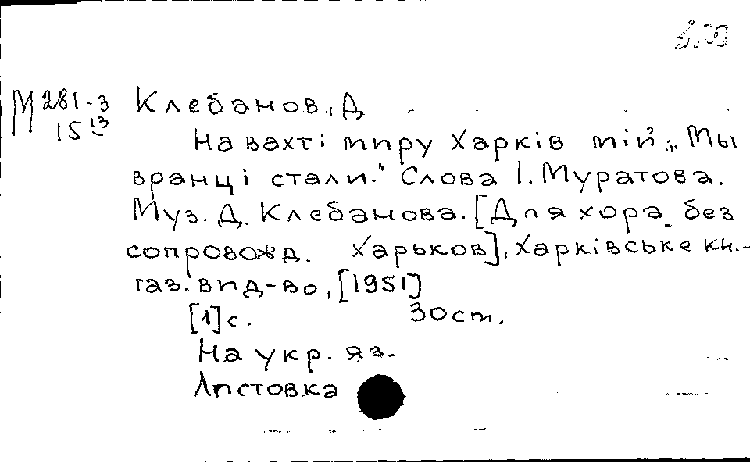 М 281-3
15 13
Клебанов, Д
На вахті миру Харків мій „Мы
вранці стали.“ Слова І. Муратова.
Муз. Д. Клебанова. [Для хора без
сопровожд. Харьков], Харківське кн.-
газ. вид-во, [1951]
[1] с. 30 cm.
На укр. яз.
Листовка